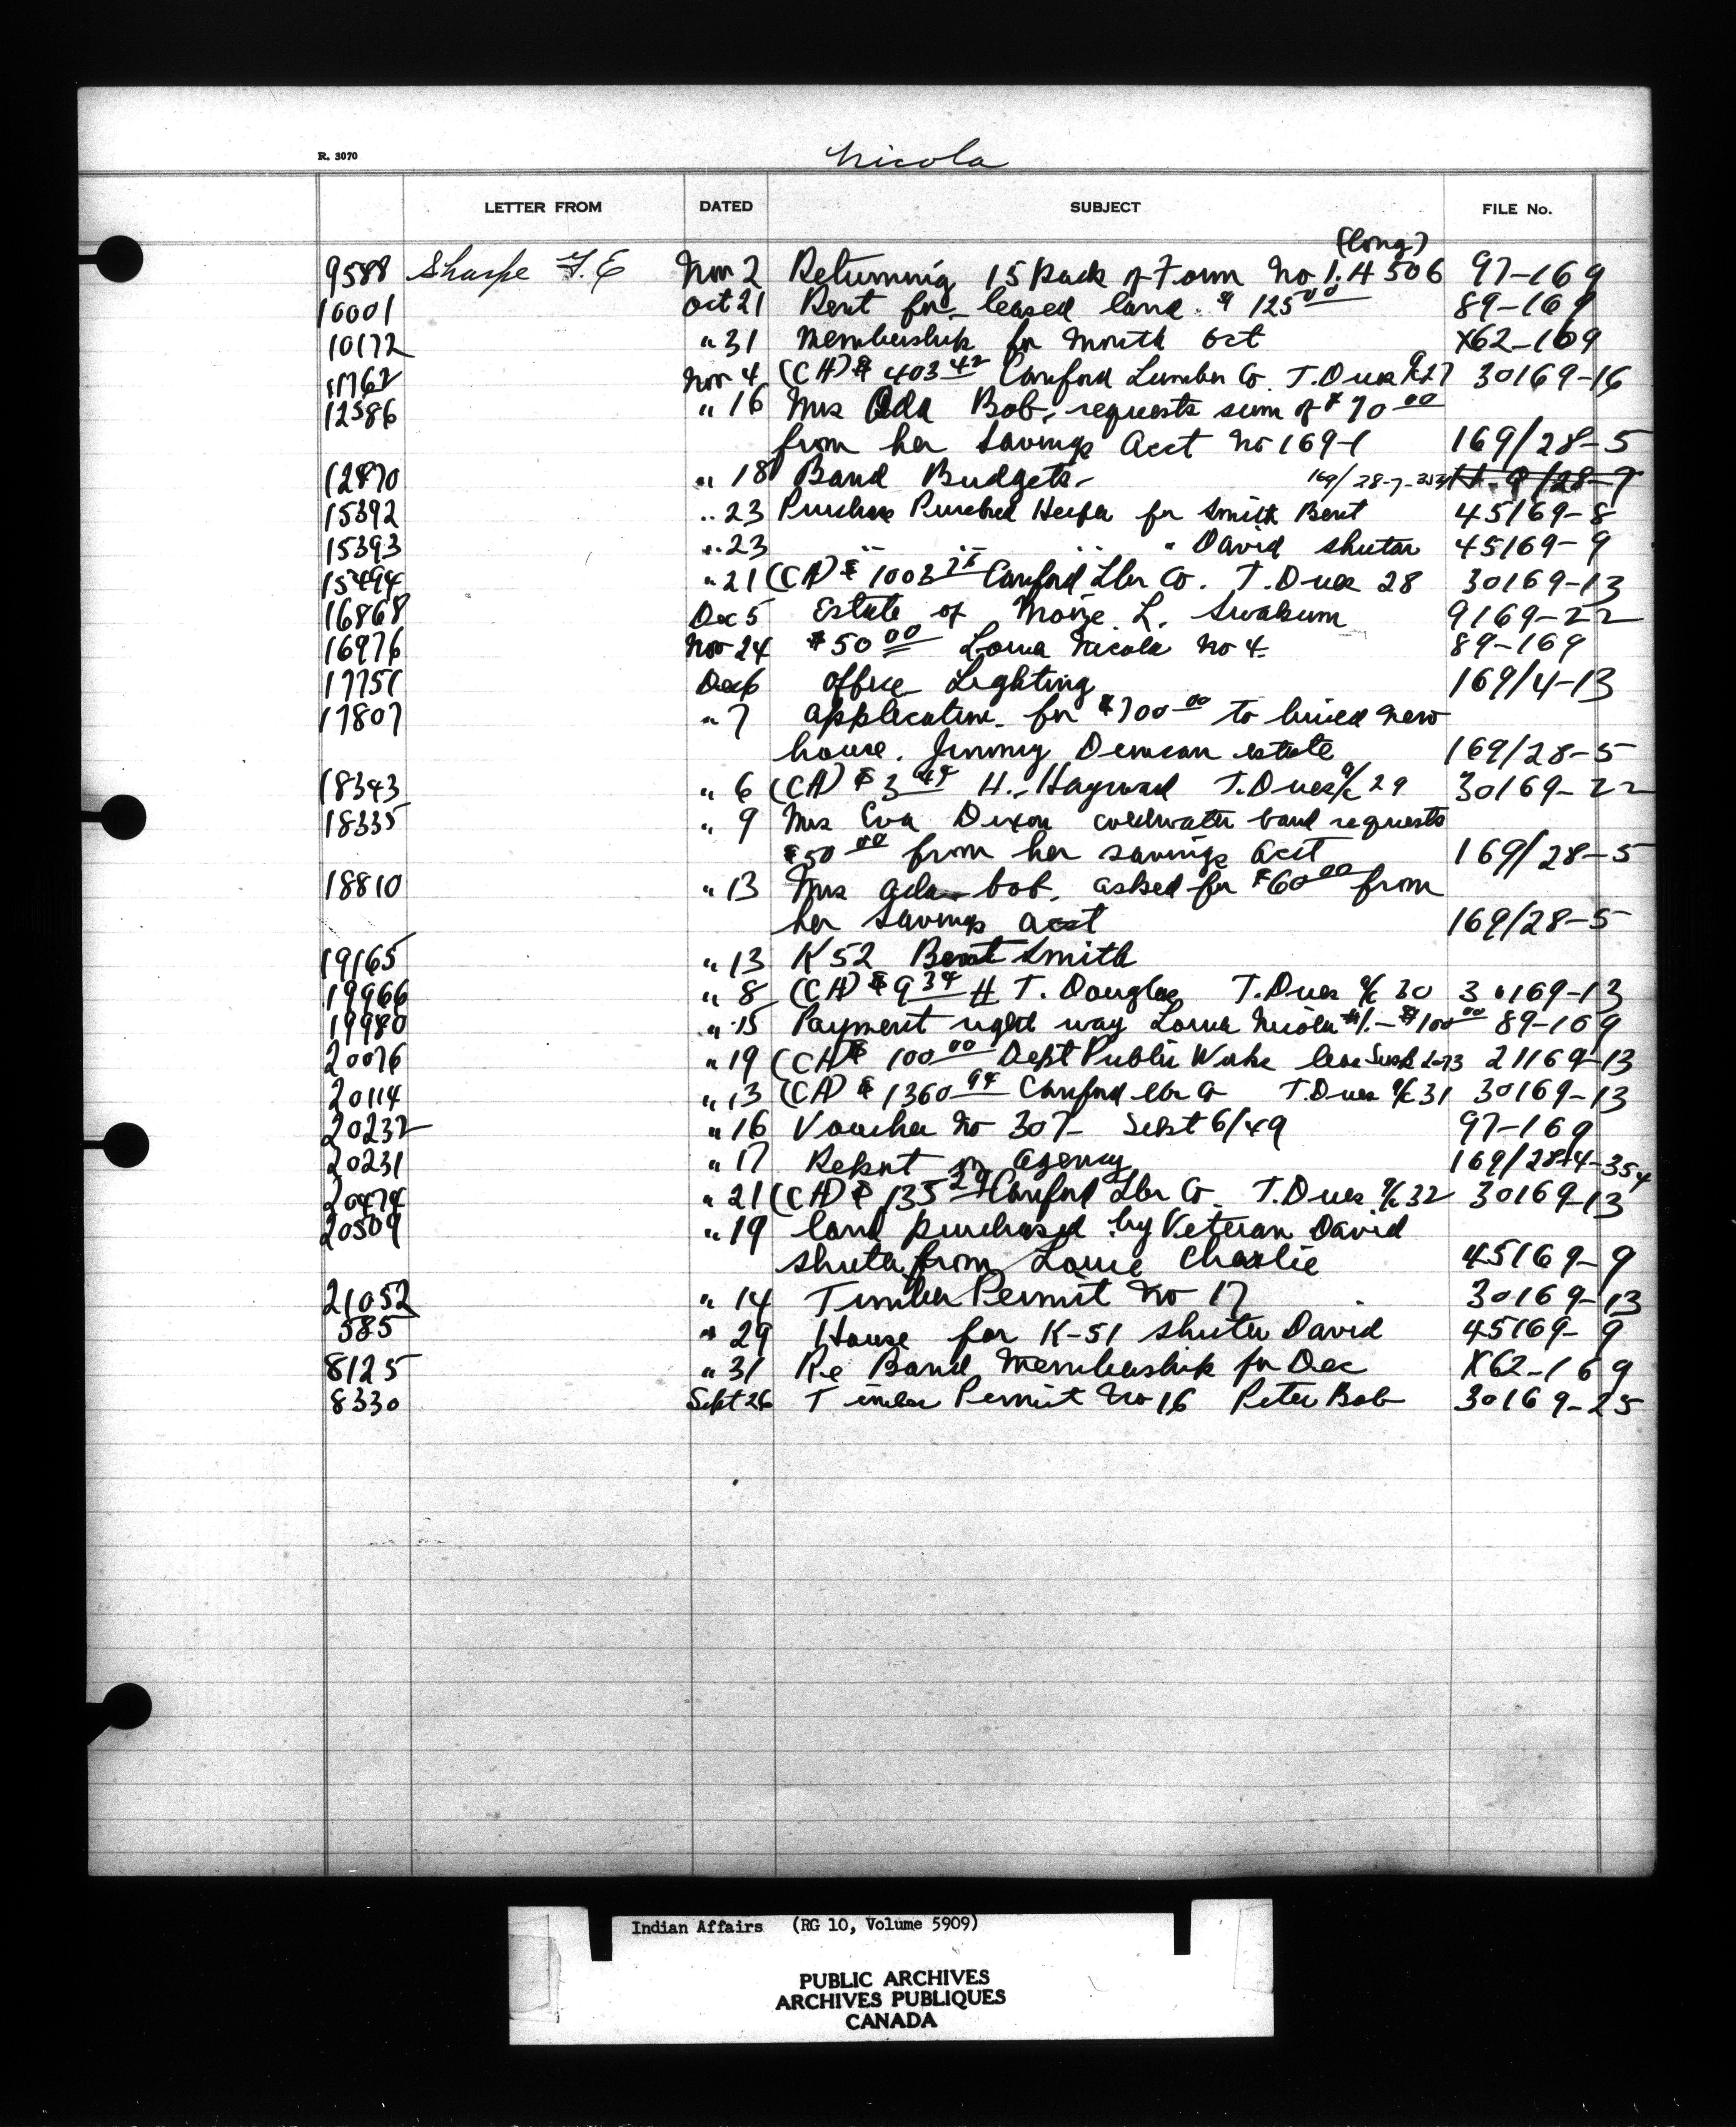 R. 3070
Nicola
LETTER FROM DATED SUBJECT FILE No.
(long)
9588 Sharpe F. E Nov 2 Returning 15 Pack of Form No I. A 506 97-169
10001 Oct 21 Rent for leased land. $ 125 00 89-169
10172 " 31 Membership for Month Oct X62-169
11762 Nov 4 (CA) $ 403 42 Canford Lumber Co. T. Dues 27 30169-16
12586 " 16 Mrs Ada Bob, requests sum of $ 70 00
from her Savings Acct No 169-1 169/28-5
12870 " 18 Band Budgets- 169/28-7-353
15392 " 23 Purchase Purebred Heifer for Smith Bent 45169-8
15393 " 23 " " " " David Shuter 45169-9
15494 " 21 (CA) $ 1003 Canford Lbr Co. T. Dues 28 30169-13
16868 Dec 5 Estate of Moize L. Swakum 9169-22
16976 Nov 24 $50 00 Nicola No 4 89-169
17751 Dec 6 Office Lighting 169/4-13
17807 " 7 Application for $700 00 to build new
house. Jimmy estate 169/28-5
18343 " 6 (CA) $ 3 49 H. Hayward T. Dues a/c 29 30169-22
18335 " 9 Mrs Eva Dixon Coldwater band requests
$50 00 from her savings acct 169/28-5
18810 " 13 Mrs Ada Bob. asked for $60 00 from
her savings acct 169/28-5
19165 " 13 K 52 Bent Smith
19966 " 8 (CA) $ 9 34 H T. Douglas T. Dues a/c 30 30169-13
19980 " 15 Payment right way Nicola #1.- $100 00 89-169
20076 " 19 (CA $ 100 00 Dept Public Works 21169-13
20114 " 13 (CA) $ 1360 94 Canford Lbr Co T. Dues a/c 31 30169-13
20232 " 16 Voucher No 307- Sept 6/49 97-169
20231 " 17 Report on Agency 169/28-4-354
20474 " 21 (CA) $ 135 29 Canford Lbr Co. T. Dues a/c 32 30169-13
20509 " 19 land purchased by Veteran David
Shuter from Louie Charlie 45169-9
21052 " 14 Timber Permit No 17 30169-13
585 " 29 House for K-51 Shuter David 45169-9
8125 " 31 Re Band Membership for Dec X62-169
8330 Sept 26 Timber Permit No 16 Peter Bob 30169-25
Indian Affairs (RG 10, Volume 5909)
PUBLIC ARCHIVES
ARCHIVES PUBLIQUES
CANADA